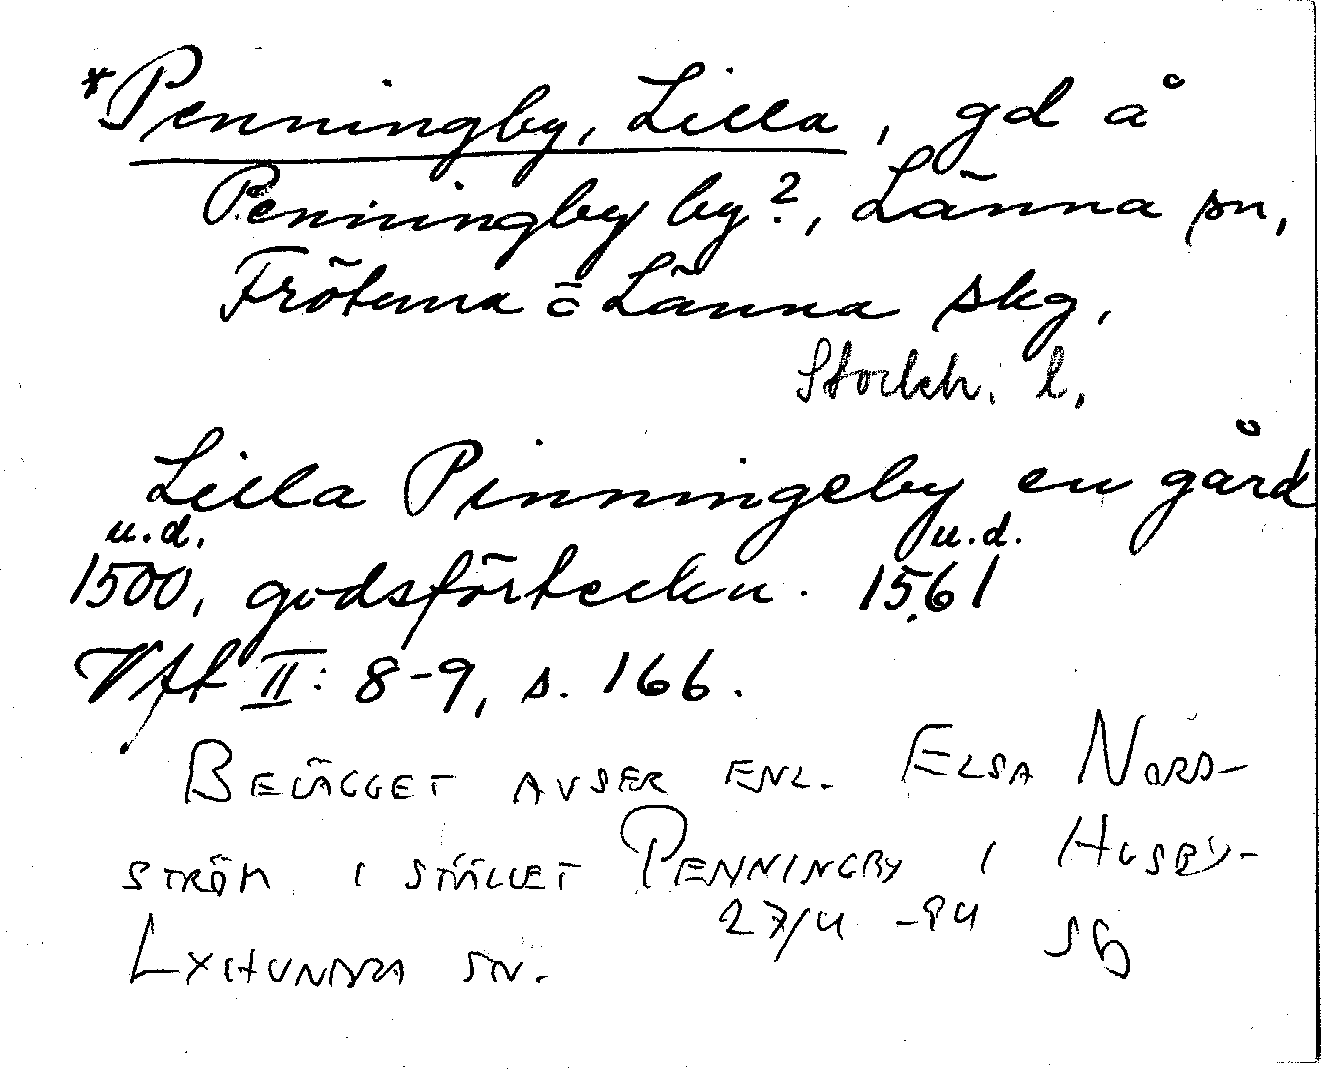 *Penningby, Lilla, gd å
Penningby by?, Länna sn,
Frötuna o Länna skg,
Stockh. l.
Lilla Pinningeby en gård
u.d. u.d.
1500, godsförteckn. 1561
Vft II: 8-9, s. 166.
BELÄGGET AVSER ENL. ELSA NORD-
STRÖM I STÄLLET PENNINGBY I HUSBY-
27/4 -84 SB
LYHUNDRA SN.